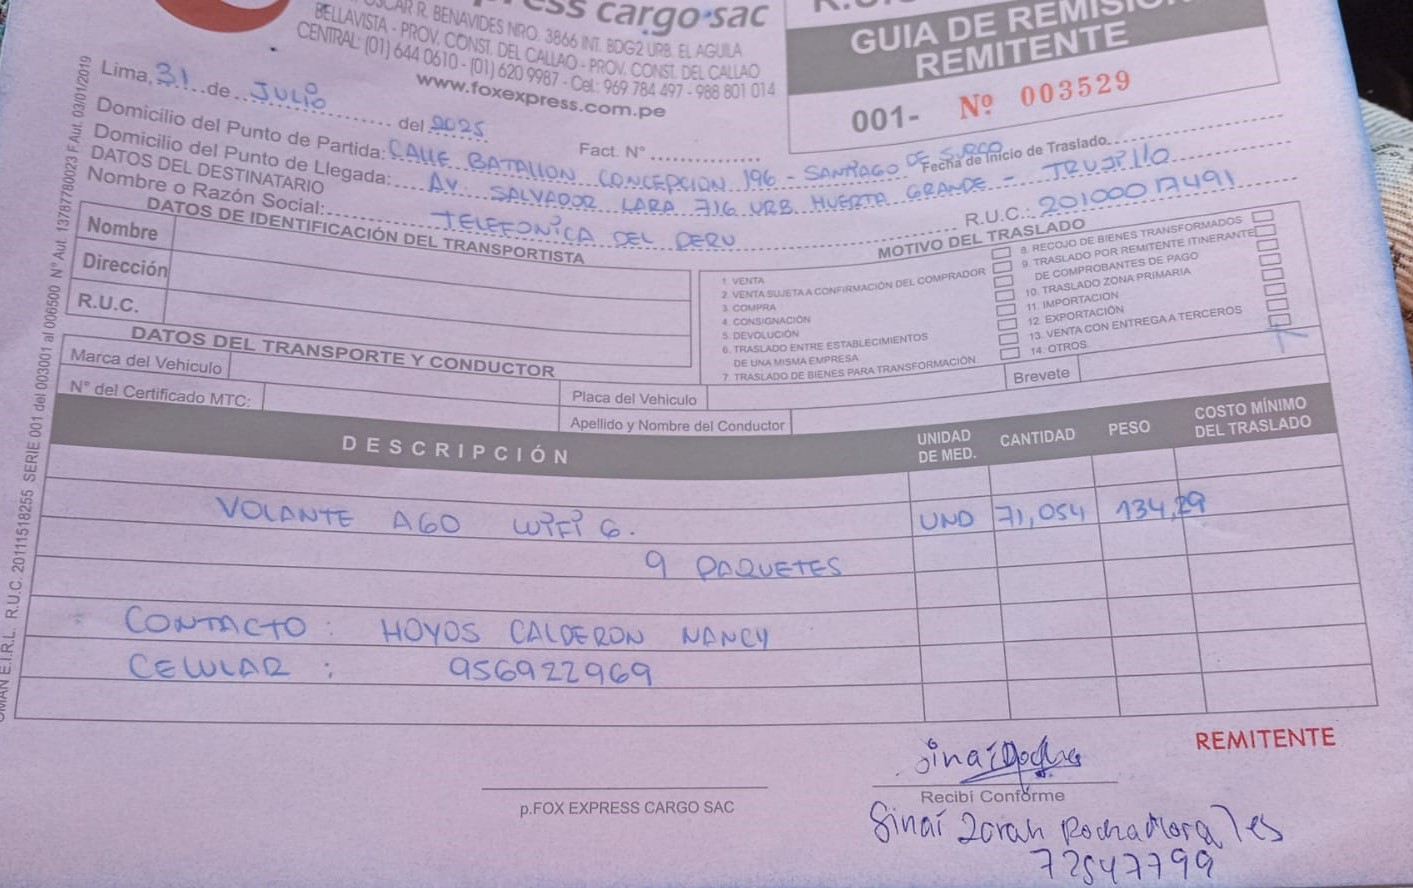 ess cargo sac
OSCAR R. BENAVIDES NRO. 3866 INT. BDG2 URB. EL AGUILA
BELLAVISTA - PROV. CONST. DEL CALLAO - PROV. CONST. DEL CALLAO
CENTRAL: (01) 644 0610 - (01) 620 9987 - Cel.: 969 784 497 - 988 801 014
www.foxexpress.com.pe
GUIA DE REMISIÓN
REMITENTE
001- Nº 003529
Lima, 31 de JULIO del 2025
Fact. N°
Fecha de Inicio de Traslado
Domicilio del Punto de Partida: CALLE BATALLON CONCEPCION 196 - SANTIAGO DE SURCO
Domicilio del Punto de Llegada: AV. SALVADOR LARA 716 URB. HUERTA GRANDE - TRUJILLO
DATOS DEL DESTINATARIO
Nombre o Razón Social: TELEFONICA DEL PERU R.U.C.: 20100017491
DATOS DE IDENTIFICACIÓN DEL TRANSPORTISTA
Nombre
Dirección
R.U.C.
MOTIVO DEL TRASLADO
1. VENTA
2. VENTA SUJETA A CONFIRMACIÓN DEL COMPRADOR
3. COMPRA
4. CONSIGNACIÓN
5. DEVOLUCIÓN
6. TRASLADO ENTRE ESTABLECIMIENTOS
DE UNA MISMA EMPRESA
7. TRASLADO DE BIENES PARA TRANSFORMACIÓN
8. RECOJO DE BIENES TRANSFORMADOS
9. TRASLADO POR REMITENTE ITINERANTE
DE COMPROBANTES DE PAGO
10. TRASLADO ZONA PRIMARIA
11. IMPORTACION
12. EXPORTACIÓN
13. VENTA CON ENTREGA A TERCEROS
14. OTROS
DATOS DEL TRANSPORTE Y CONDUCTOR
Marca del Vehiculo
Placa del Vehiculo
Brevete
N° del Certificado MTC:
Apellido y Nombre del Conductor
DESCRIPCIÓN
UNIDAD
DE MED.
CANTIDAD
PESO
COSTO MÍNIMO
DEL TRASLADO
VOLANTE AGO WIFI 6. UND 71,054 134,29
9 PAQUETES
CONTACTO: HOYOS CALDERON NANCY
CELULAR : 956922969
REMITENTE
p.FOX EXPRESS CARGO SAC
Recibí Conforme
Sinaí Zorah Rocha Morales
72547799
E.I.R.L. R.U.C. 20111518255 SERIE 001 del 003001 al 006500 N° Aut. 13787780023 F.Aut. 03/01/2019